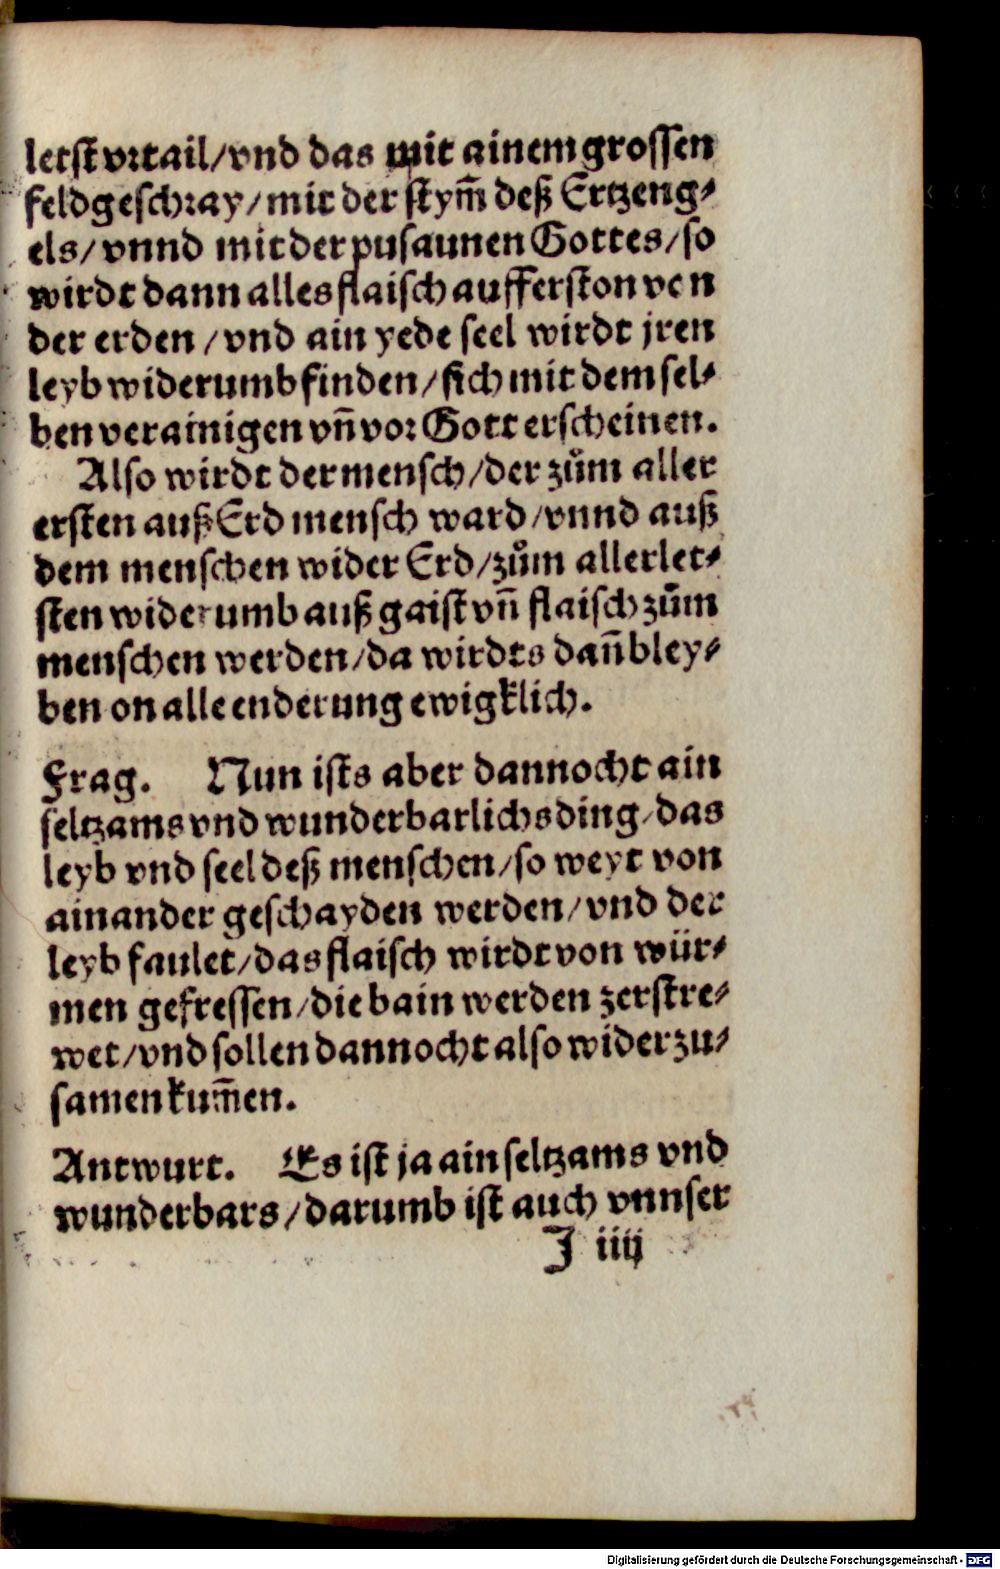 letst vrtail/vnd das mit ainem grossen
feldgeschray/mit der stym̄ deß Ertzeng⸗
els/vnnd mit der pusaunen Gottes/so
wirdt dann alles flaisch aufferston von
der erden/vnd ain yede seel wirdt jren
leyb widerumb finden/sich mit dem sel⸗
ben verainigen vn̄ vor Gott erscheinen.
Also wirdt der mensch/der zům aller
ersten auß Erd mensch ward/vnnd auß
dem menschen wider Erd/zům allerlet⸗
sten widerumb auß gaist vn̄ flaisch zům
menschen werden/da wirdts dan̄ bley⸗
ben on alle enderung ewigklich.
Frag. Nun ists aber dannocht ain
seltzams vnd wunderbarlichs ding/das
leyb vnd seel deß menschen/so weyt von
ainander geschayden werden/vnd der
leyb faulet/das flaisch wirdt von wür⸗
men gefressen/die bain werden zerstre⸗
wet/vnd sollen dannocht also wider zu⸗
samen kum̄en.
Antwurt. Es ist ja ain seltzams vnd
wunderbars/darumb ist auch vnnser
J iiij
Digitalisierung gefördert durch die Deutsche Forschungsgemeinschaft - DFG